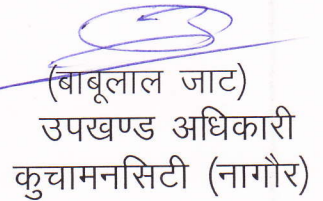 (बाबूलाल जाट)
उपखण्ड अधिकारी
कुचामनसिटी (नागौर)